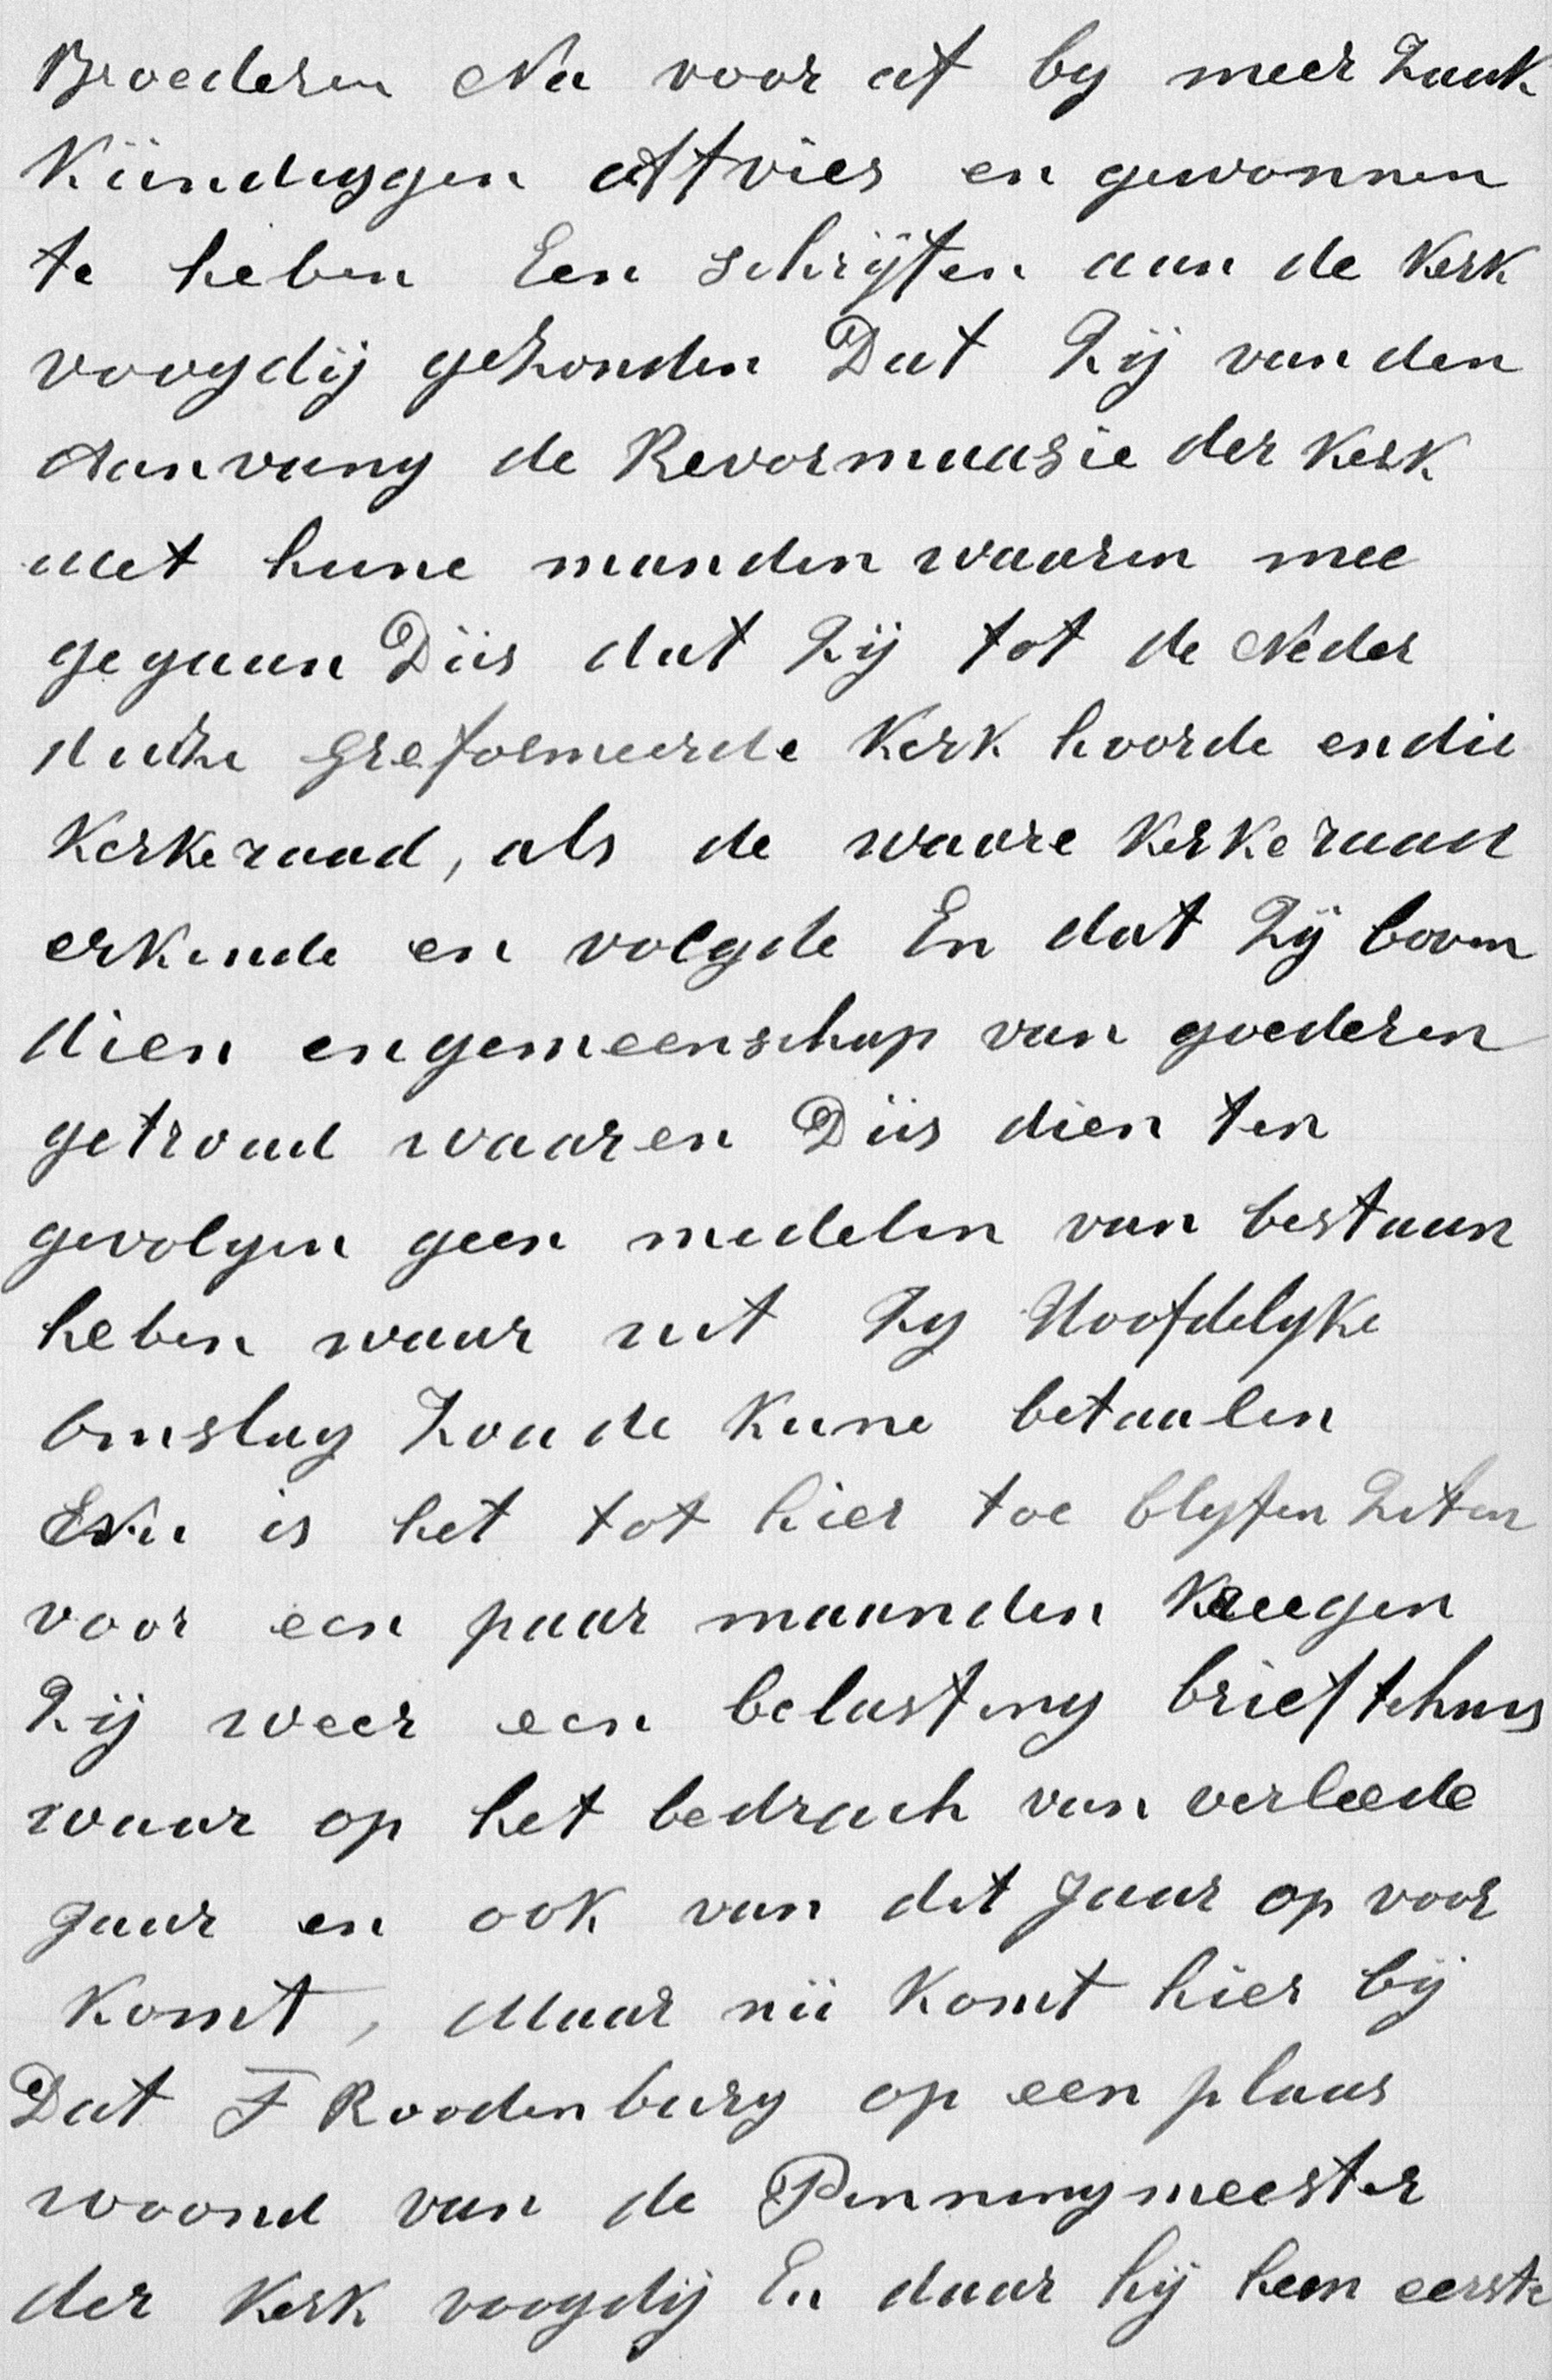 Broederen Na voor af by meer Zaak
Kündiggen Atvies en gewonnen
te heben Een schrijfen aan de Kerk
voogdij gezonden Dat Zij van den
Aanvang de Revormaasie der Kerk
Met hune manden waaren mee
gegaan Düs dat Zij tot de Neder
duitze Greformeerde Kerk hoorde en die
Kerkeraad, als de waare Kerkeraad
erkende en volgde En dat Zij boven
dien en gemeenschap van goederen
getroud waaren Düs dien ten
gevolgen geen medelen van bestaan
heben waar uit Zy Hoofdelyke
Omslag Zoude Kune betaalen
En is het tot hier toe blyfen Ziten
voor een paar maanden Kreegen
Zij weer een belasting brief tehuis
waar op het bedrach van verleede
Jaar en ook van dit Jaar op voor
Komt, Maar nü Komt hier bij
Dat F Roodenburg op een plaas
woond van de Penningmeester
der Kerk voogdij En daar hij hem eerste